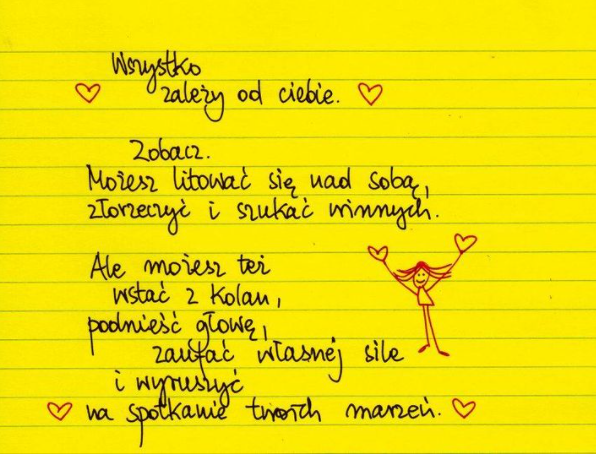 Wszystko
zależy od ciebie.
Zobacz.
Możesz litować się nad sobą,
złorzeczyć i szukać winnych.
Ale możesz też
wstać z kolan,
podnieść głowę,
zaufać własnej sile
i wyruszyć
na spotkanie twoich marzeń.